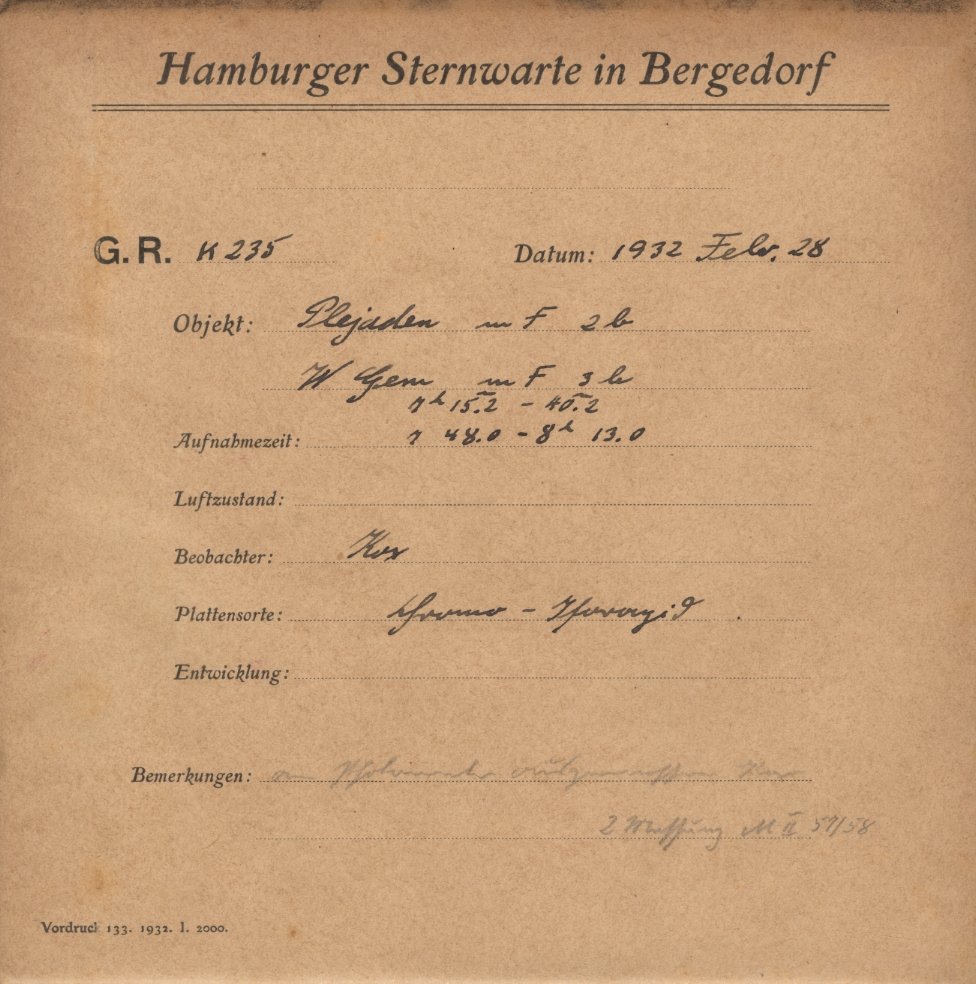 Hamburger Sternwarte in Bergedorf
G. R. K 235 Datum: 1932 Febr. 28
Objekt: Plejaden m F 2 b
W Gem m F 3 b
7h 15.2 - 40.2
Aufnahmezeit: 7 48.0 - 8h 13.0
Luftzustand:
Beobachter: Kox
Plattensorte: Chromo - Isorapid
Entwicklung:
Bemerkungen: am ausgemessen Kox
2 Messung M II 57/58
Vordruck 133. 1932. I. 2000.